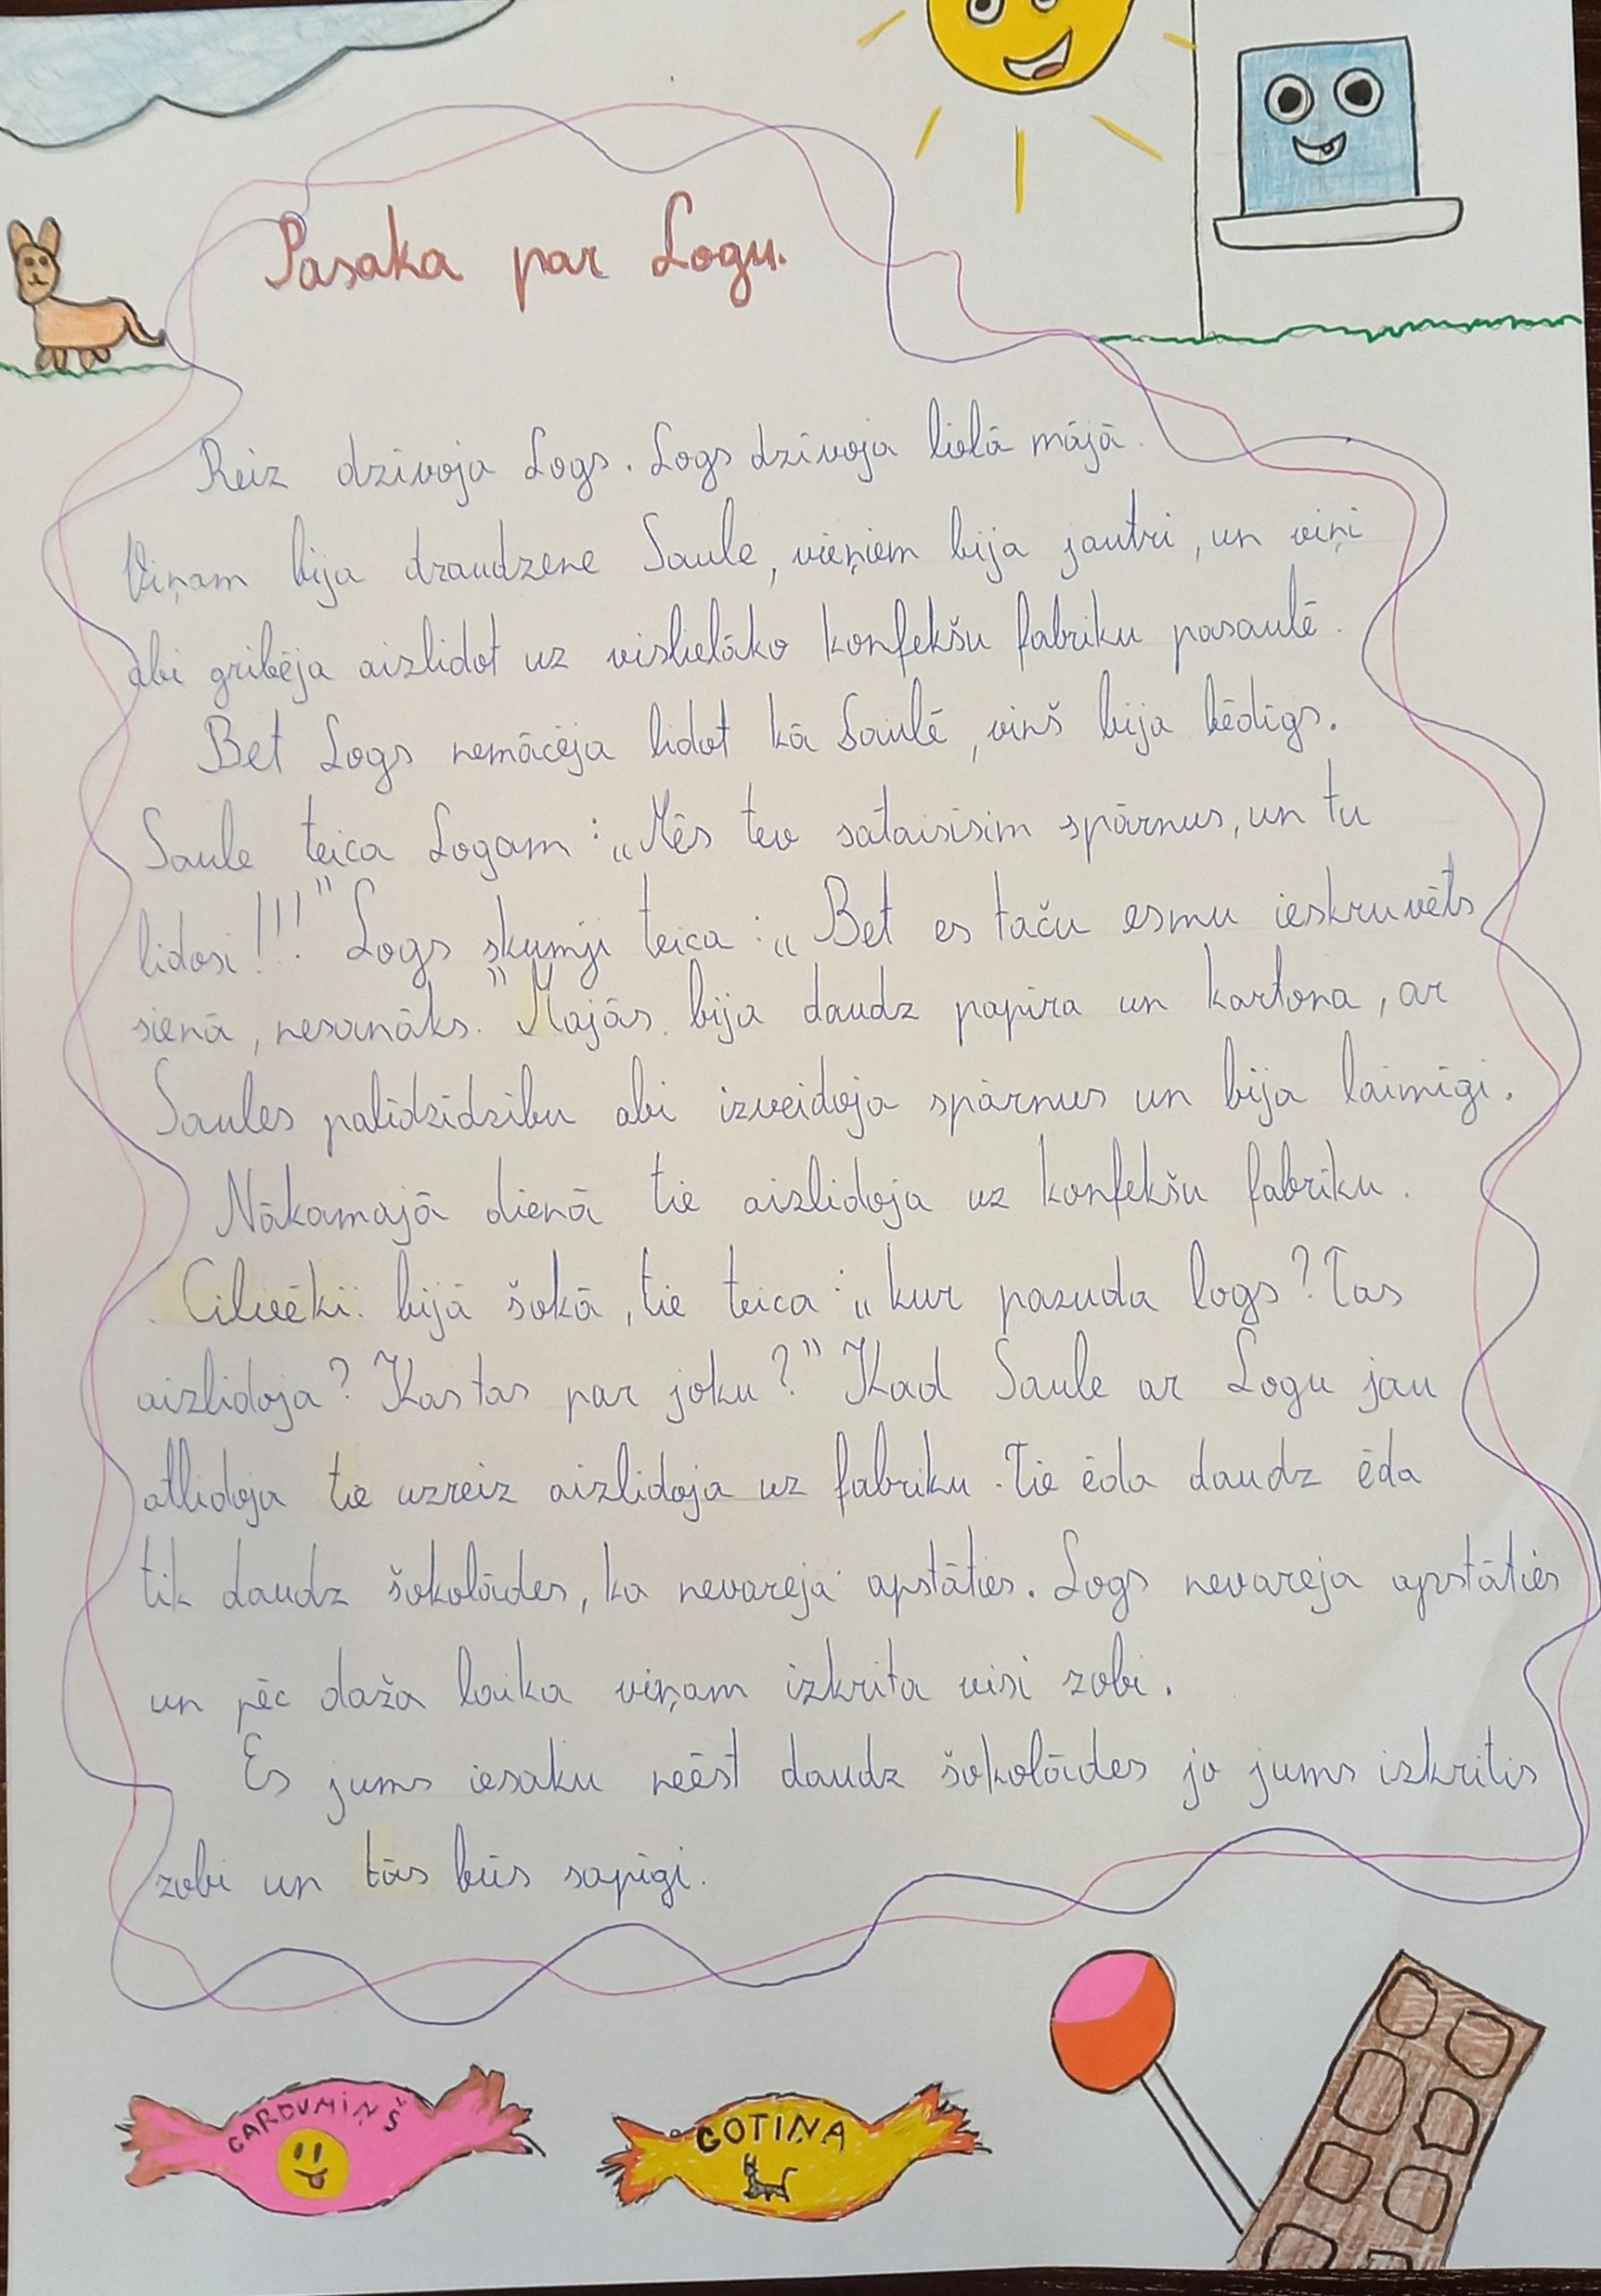 Pasaka par Logu.
Reiz dzīvoja Logs. Logs dzīvoja lielā mājā.
Viņam bija draudzene Saule, vieņiem bija jautri, un viņi
abi gribēja aizlidot uz vislielāko konfekšu fabriku pasaulē.
Bet Logs nemācēja lidot kā Saulē, viņš bija bēdīgs.
Saule teica Logam: „Mēs tev sataisīsim spārnus, un tu
lidosi!!!" Logs skumji teica: „Bet es taču esmu ieskruvēts
sienā, nesanāks." Majās bija daudz papīra un kartona, ar
Saules palīdzīdzību abi izveidoja spārnus un bija laimīgi.
Nākamajā dienā tie aizlidoja uz konfekšu fabriku.
Cilvēki bijā šokā, tie teica: „kur pazuda logs? Tas
aizlidoja? Kas tas par joku?" Kad Saule ar Logu jau
atlidoja tie uzreiz aizlidoja uz fabriku. Tie ēda daudz ēda
tik daudz šokolādes, ka nevarēja apstāties. Logs nevarēja apstāties
un pēc daža laika viņam izkrita visi zobi.
Es jums iesaku neēst daudz šokolādes jo jums izkritīs
zobi un tās būs sāpīgi.
GARDUMIŅŠ
GOTIŅA